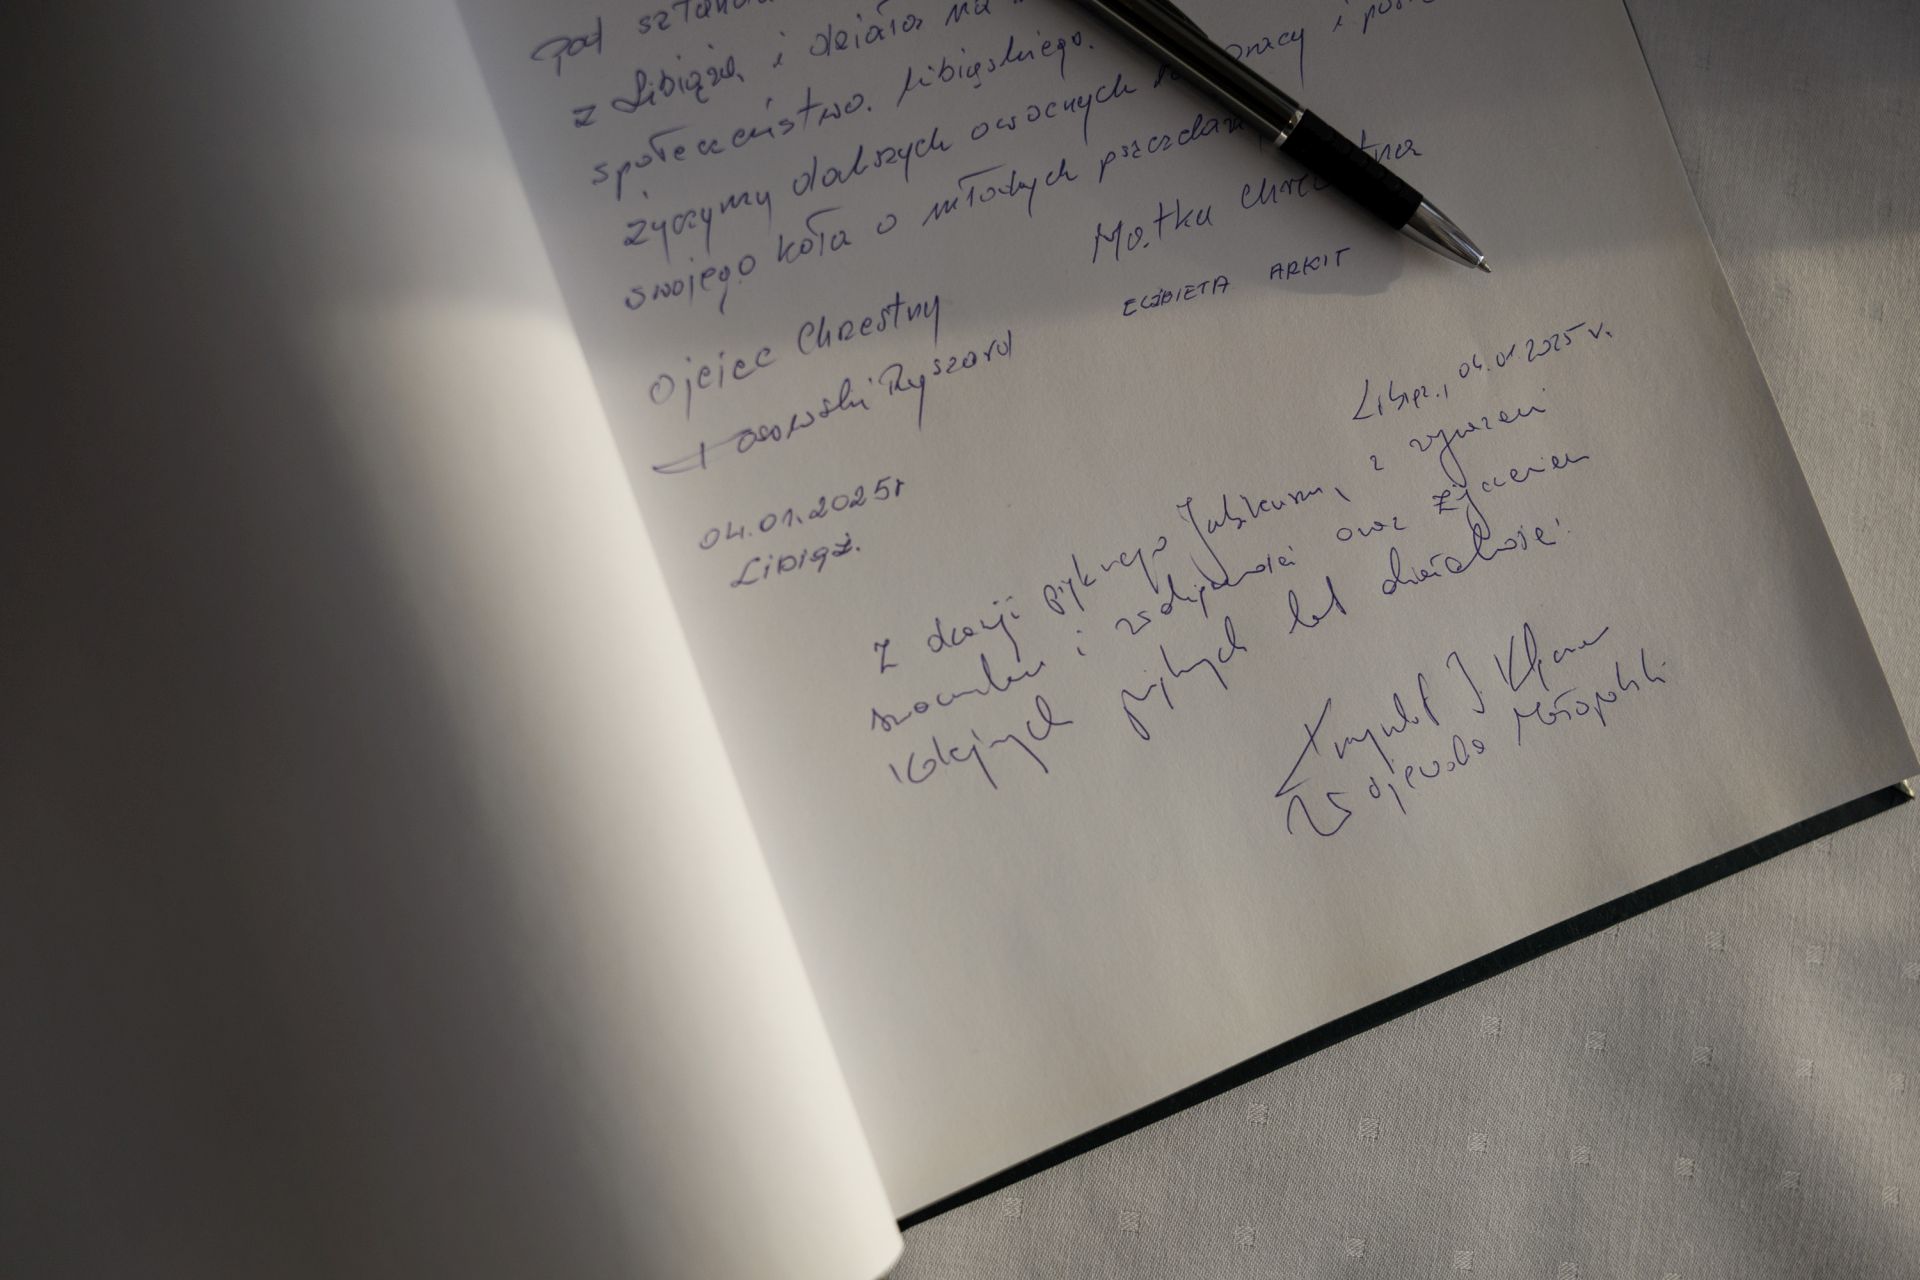 pod sztanda
z Libiąża, i działa na
społeczeństwo. libiąskiego.
życzymy dalszych owocnych pracy i
swojego koła o młodych pszczelarz
Matka Chrzestna
ELŻBIETA ARKIT
Ojciec Chrzestny
Kosowski Ryszard
04.01.2025r
Libiąż.
Libiąż, 04.01.2025 r.
Z okazji pięknego Jubileuszu, z wyrazami
szacunku i wdzięczności oraz życzeniem
kolejnych pięknych lat działalności
Krzysztof J. Klęczar
Wojewoda Małopolski